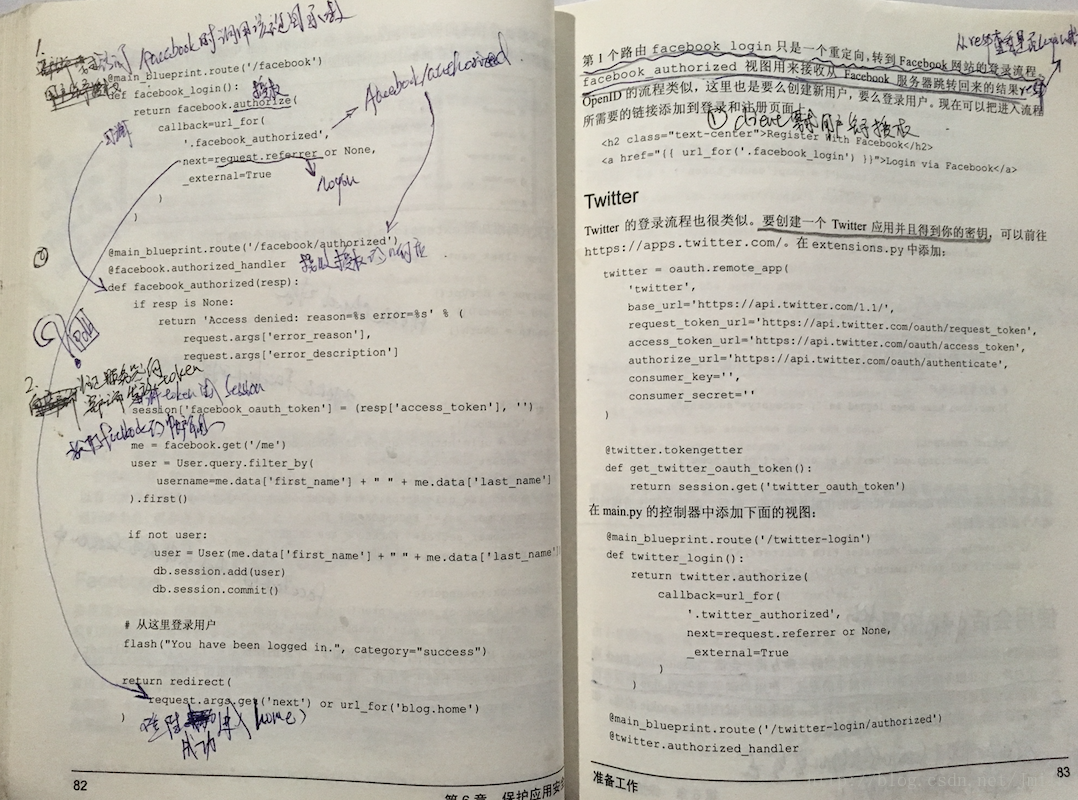 1.
访问 /facebook时调用该视图函数
@main_blueprint.route('/facebook')
def facebook_login():
授权
return facebook.authorize(
callback=url_for(
'.facebook_authorized',
next=request.referrer or None,
_external=True
)
)
/facebook/authorized
login
@main_blueprint.route('/facebook/authorized')
@facebook.authorized_handler
def facebook_authorized(resp):
if resp is None:
return 'Access denied: reason=%s error=%s' % (
request.args['error_reason'],
request.args['error_description']
)
2.
token
token
session
session['facebook_oauth_token'] = (resp['access_token'], '')
facebook
me = facebook.get('/me')
user = User.query.filter_by(
username=me.data['first_name'] + " " + me.data['last_name']
).first()
if not user:
user = User(me.data['first_name'] + " " + me.data['last_name']
db.session.add(user)
db.session.commit()
# 从这里登录用户
flash("You have been logged in.", category="success")
return redirect(
request.args.get('next') or url_for('blog.home')
)
(home)
成功
82
第 6 章 保护应用安全
第 1 个路由 facebook_login 只是一个重定向,转到 Facebook 网站的登录流程。
facebook_authorized 视图用来接收从 Facebook 服务器跳转回来的结果。
OpenID 的流程类似,这里也是要么创建新用户,要么登录用户。现在可以把进入流程
所需要的链接添加到登录和注册页面上
① client 用户 授权
<h2 class="text-center">Register With Facebook</h2>
<a href="{{ url_for('.facebook_login') }}">Login via Facebook</a>
Twitter
Twitter 的登录流程也很类似。要创建一个 Twitter 应用并且得到你的密钥,可以前往
https://apps.twitter.com/。在 extensions.py 中添加:
twitter = oauth.remote_app(
'twitter',
base_url='https://api.twitter.com/1.1/',
request_token_url='https://api.twitter.com/oauth/request_token',
access_token_url='https://api.twitter.com/oauth/access_token',
authorize_url='https://api.twitter.com/oauth/authenticate',
consumer_key='',
consumer_secret=''
)
@twitter.tokengetter
def get_twitter_oauth_token():
return session.get('twitter_oauth_token')
在 main.py 的控制器中添加下面的视图:
@main_blueprint.route('/twitter-login')
def twitter_login():
return twitter.authorize(
callback=url_for(
'.twitter_authorized',
next=request.referrer or None,
_external=True
)
)
@main_blueprint.route('/twitter-login/authorized')
@twitter.authorized_handler
准备工作
83